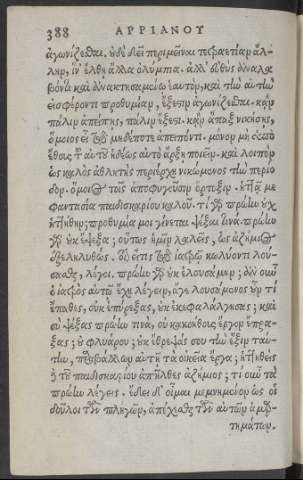 388 ΑΡΡΙΑΝΟΥ
ἀγωνίζεσθαι. οὐδὲ δεῖ περιμεῖναι τετραετίαν ἄλ-
λην, ἵν' ἔλθῃ ἄλλα ὀλύμπια. ἀλλ' εὐθὺς ἀναλα
βόντι καὶ ἀνακτησαμένῳ ἑαυτὸν, καὶ τὴν αὐτὴν
εἰσφέροντι προθυμίαν, ἔξεστιν ἀγωνίζεσθαι. κἂν
πάλιν ἀπείπῃς, πάλιν ἔξεστι. κἂν ἅπαξ νικήσῃς,
ὅμοιος εἶ τῷ μηδέποτε ἀπειπόντι. μόνον μὴ ὑπὸ
ἔθους τοῦ αὐτοῦ ἡδέως αὐτὸ ἄρξῃ ποιεῖν. καὶ λοιπὸν
ὡς κακὸς ἀθλητὴς περιέρχῃ νικώμενος τὴν περίο
δον. ὅμοιος τοῖς ἀποφυγοῦσιν ὄρτυξιν. ἡττᾷ με
φαντασία παιδισκαρίου καλοῦ. τί γὰρ πρώην οὐχ
ἡττήθην; προθυμία μοι γίνεται ψέξαι τινά. πρώην
γὰρ οὐκ ἔψεξα; οὕτως ἡμῖν λαλεῖς, ὡς ἀζήμιος
ἐξεληλυθώς. οἱονεί τις τῷ ἰατρῷ κωλύοντι λού-
εσθαι, λέγοι. πρώην γὰρ οὐκ ἐλουσάμην; ἂν οὖν
ὁ ἰατρὸς αὐτῷ ἔχῃ λέγειν, ἄγε λουσάμενος οὖν τί
ἔπαθες, οὐκ ἐπύρεξας, οὐκ ἐκεφαλάλγησας; καὶ
σὺ ψέξας πρώην τινὰ, οὐ κακοήθους ἔργον ἔπρα-
ξας; οὐ φλυάρου; οὐκ ἔθρεψάς σου τὴν ἕξιν ταύ-
την, παραβάλλων αὐτῇ τὰ οἰκεῖα ἔργα; ἡττηθεὶς
δὲ τοῦ παιδισκαρίου ἀπῆλθες ἀζήμιος; τί οὖν τὰ
πρώην λέγεις. ἔδει δ' οἶμαι μεμνημένον ὡς οἱ
δοῦλοι τῶν πληγῶν, ἀπέχεσθαι τῶν αὐτῶν ἁμαρ-
τημάτων.